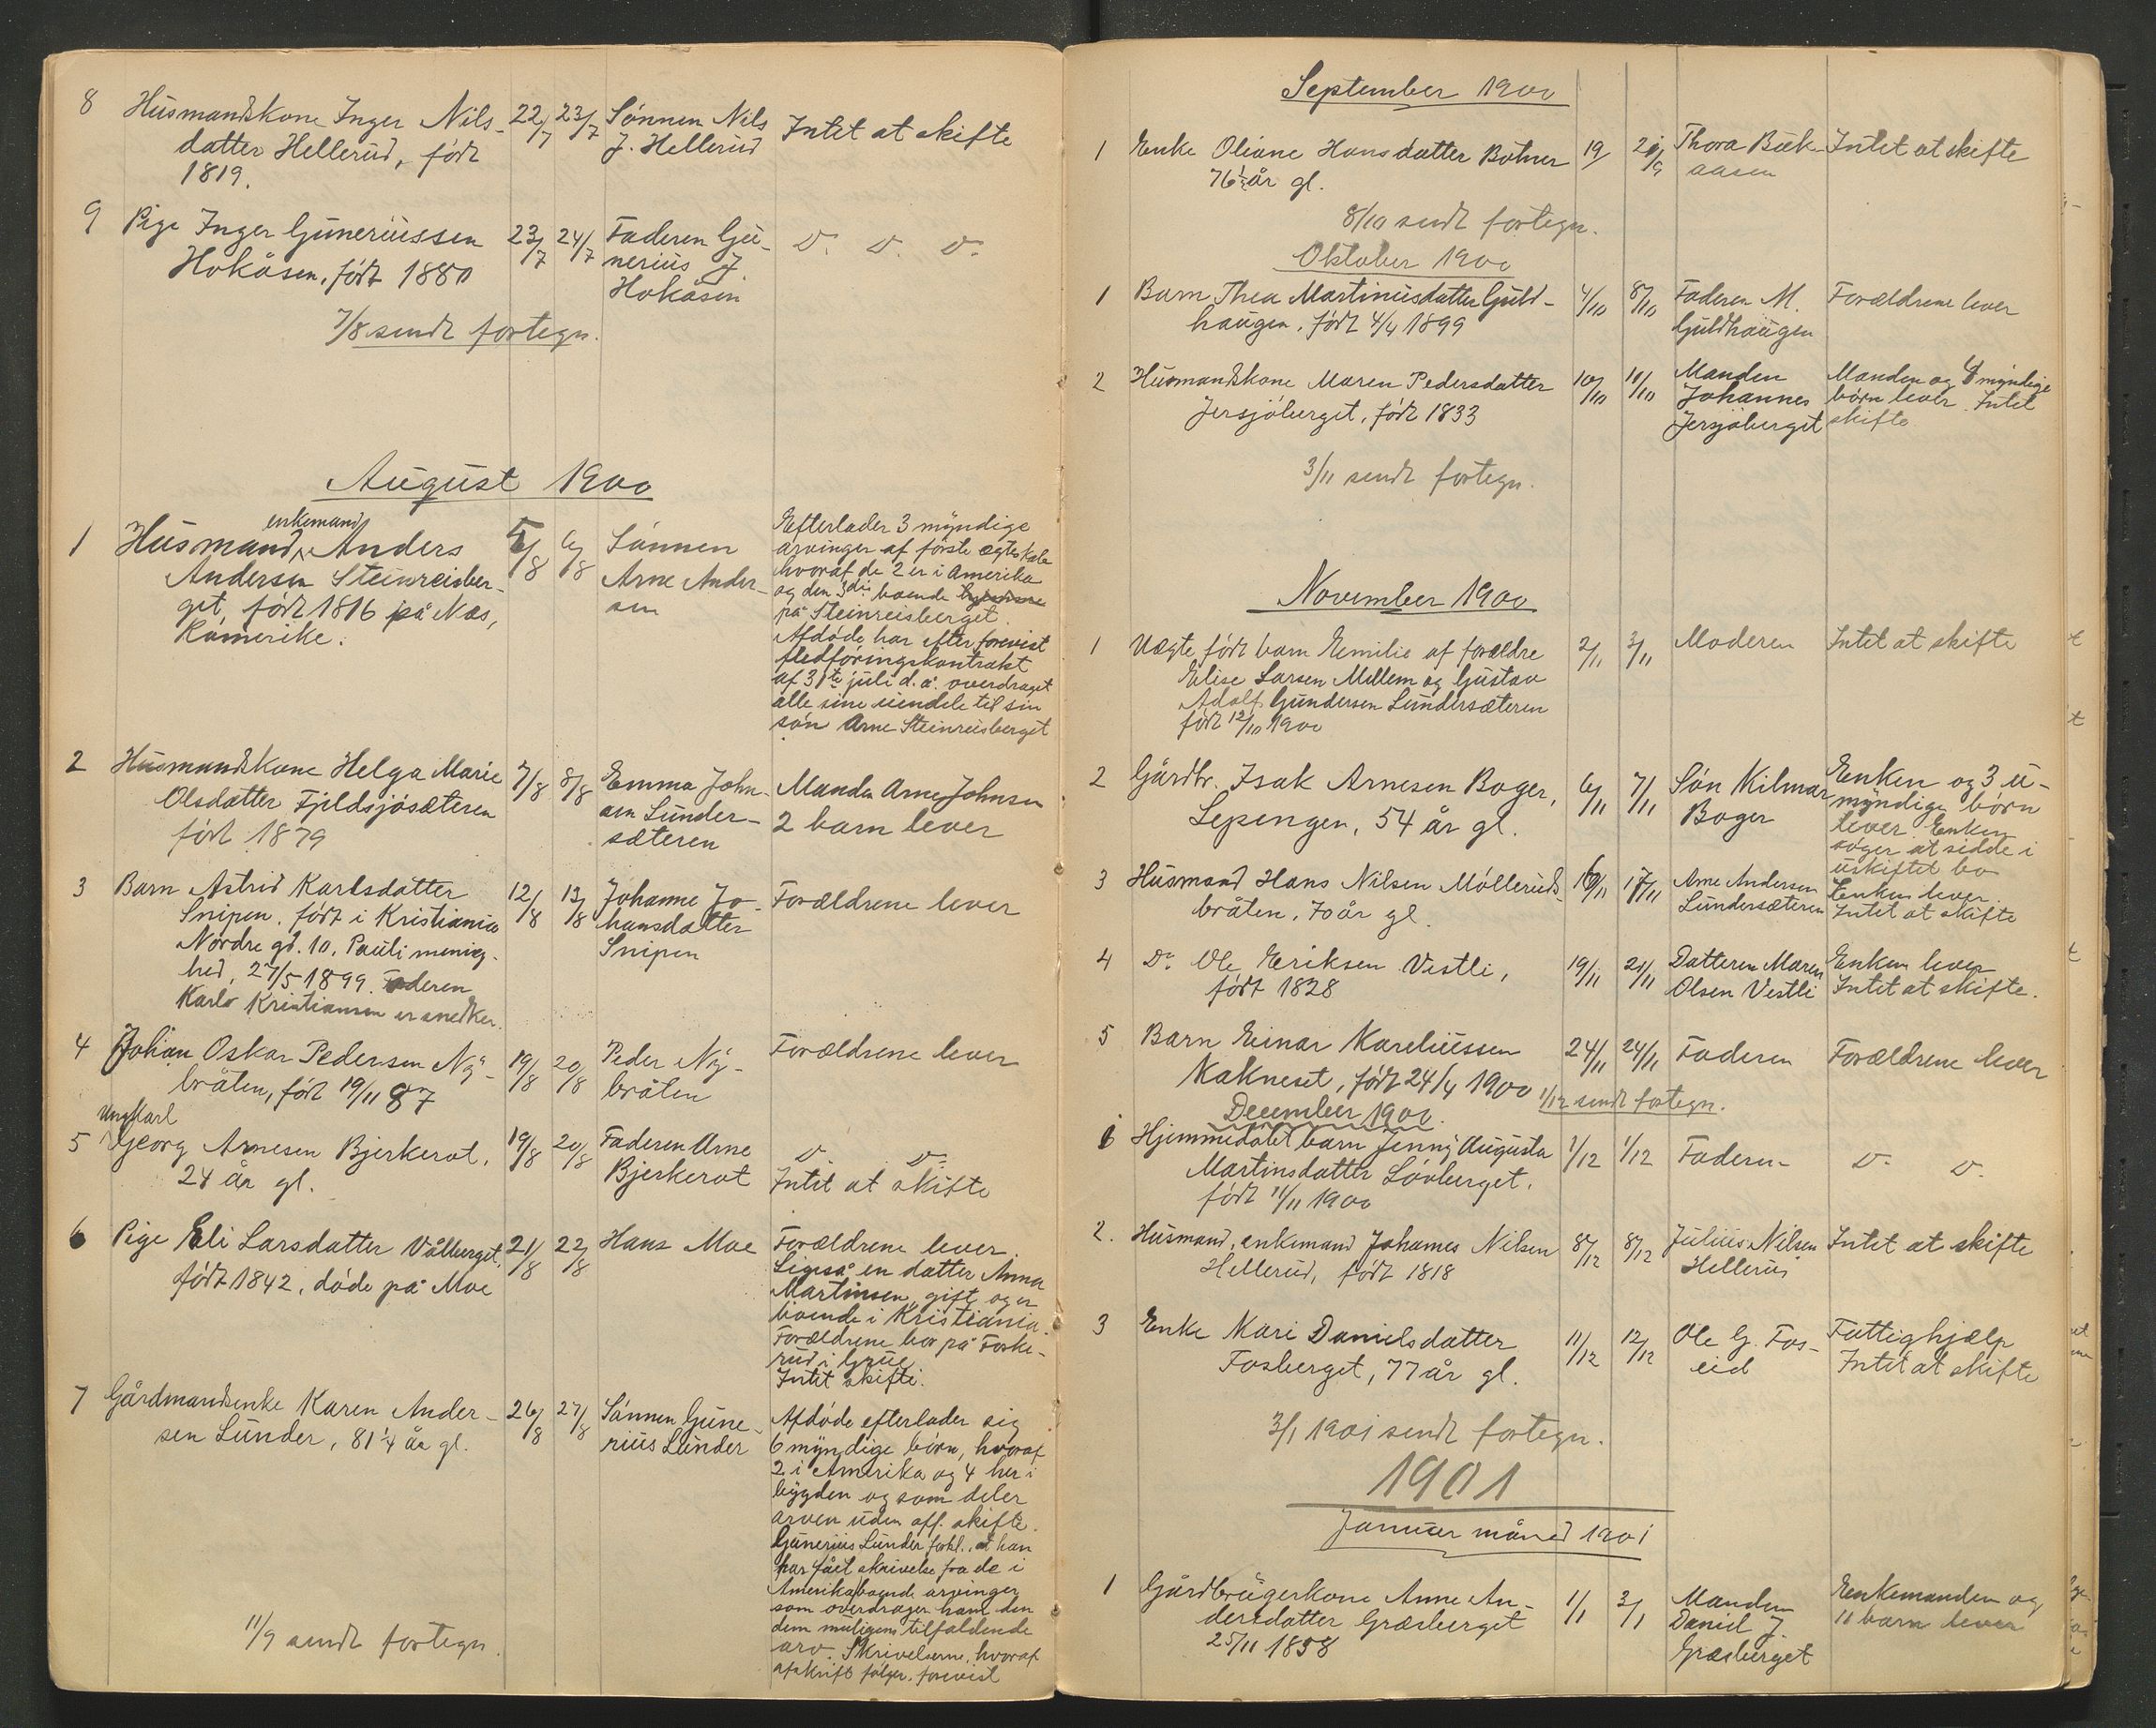 8 Husmandskone Inger Nils- 22/7 23/7 Sønnen Nils Intet at skifte
datter Hellerud, født J. Hellerud
1819.
9 Pige Inger Guneriussen 23/7 24/7 Faderen Gu- D. D. D.
Hokåsen, født 1880 nerius J.
Hokåsen
7/8 sendt fortegn.
August 1900
1 Husmand, enkemand Anders 5/8 6/8 Sønnen
Andersen Steinreisber- Arne Ander-
get, født 1816 på Næs, sen
Romerike.
Efterlader 3 myndige
arvinger af første ægteskab
hvoraf de 2 er i Amerika
og den 3die boende
på Steinreisberget.
Afdøde har efter forevist
flødføringskontrakt
af 31te juli d.å. overdraget
alle sine eiendele til sin
søn Arne Steinreisberget
2 Husmandskone Helga Marie 7/8 8/8 Emma John- Manden Arne Johnsen
Olsdatter Fjeldsjøsæteren sen Lunder- 2 barn lever
født 1879 sæteren
3 Barn Astrid Karlsdatter 12/8 13/8 Johanne Jo- Forældrene lever
Snipen, født i Kristiania hansdatter
Nordre gd. 10, Pauli menig- Snipen
hed, 27/5 1899. Faderen
Karlo Kristiansen er snedker.
4 Johan Oskar Pedersen Ny- 19/8 20/8 Peder Ny- Forældrene lever
bråten, født 19/11 87 bråten
Ungkarl
5 Georg Arnesen Bjerkerot, 19/8 20/8 Faderen Arne D. D.
24 år gl. Bjerkerot Intet at skifte
6 Pige Eli Larsdatter Vålberget, 21/8 22/8 Hans Moe Forældrene lever.
født 1842, døde på Moe
Ligeså en datter Anna
Martinsen, gift og er
boende i Kristiania.
Forældrene bor på Foske-
rud i Grue
Intet skifte.
7 Gårdmandsenke Karen Ander- 26/8 27/8 Sønnen Gune-
sen Lunder, 81 1/4 år gl. rius Lunder
Afdøde efterlader sig
6 myndige børn, hvoraf
2 i Amerika og 4 her i
bygden og som deler
arven uden off. skifte.
Gunerius Lunder forkl., at han
har fået skrivelse fra de i
Amerika boende arvinger
som overdrager ham den
dem muligens tilfaldende
arv. Skrivelserne, hvoraf
afskrift følger, forevist
11/9 sendt fortegn.
September 1900
1 Enke Oliane Hansdatter Botner 19/ 21/9 Thora Bæk- Intet at skifte
76 1/2 år gl. aasen
8/10 sendt fortegn.
Oktober 1900
1 Barn Thea Martinusdatter Guld- 4/10 8/10 Faderen M. Forældrene lever
haugen, født 4/4 1899 Guldhaugen
2 Husmandskone Maren Pedersdatter 10/10 11/10 Manden Manden og 4 myndige
Jersjøberget, født 1833 Johannes børn lever. Intet
Jersjøberget skifte
3/11 sendt fortegn.
November 1900
1 Uægte født barn Emilie af forældre 2/11 3/11 Moderen Intet at skifte
Elise Larsen Mellem og Gustav
Adolf Gundersen Lundersæteren
født 12/10 1900
2 Gårdbr. Isak Arnesen Boger, 6/11 7/11 Søn Kilmar Enken og 3 u-
Lepingen, 54 år gl. Boger myndige børn
lever. Enken
søger at sidde i
uskiftet bo
3 Husmand Hans Nilsen Møllerud- 16/11 17/11 Arne Andersen Enken lever.
bråten, 70 år gl. Lundersæteren Intet at skifte
4 Do. Ole Eriksen Vestli, 19/11 21/11 Datteren Maren Enken lever
født 1828 Olsen Vestli Intet at skifte.
5 Barn Einar Kareliussen 24/11 24/11 Faderen Forældrene lever
Kakneset, født 24/4 1900 1/12 sendt fortegn.
December 1900.
1 Hjemmedøbt barn Jenny Augusta 1/12 1/12 Faderen D. D.
Martinsdatter Løvberget,
født 11/11 1900
2. Husmand, enkemand Johannes Nilsen 8/12 8/12 Julius Nilsen Intet at skifte
Hellerud, født 1818 Hellerud
3 Enke Kari Danielsdatter 11/12 12/12 Ole G. Fos- Fattighjælp
Fosberget, 77 år gl. eid Intet at skifte
3/1 1901 sendt fortegn.
1901
Januar måned 1901
1 Gårdbrugerkone Anne An- 1/1 3/1 Manden Enkemanden og
dersdatter Græsberget Daniel J. 11 barn lever
25/11 1858 Græsberget